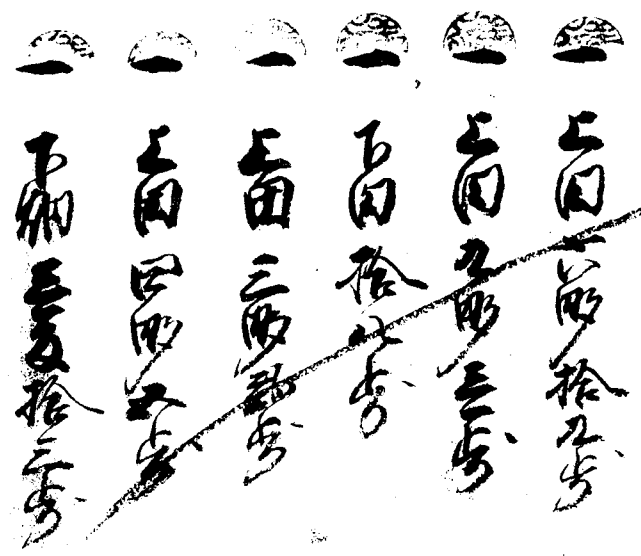 一 上田六畝拾九歩
一 上田九畝三歩
一 下田拾八歩
一 上田三畝 歩
一 上田四畝五歩
一 下畑 拾三歩